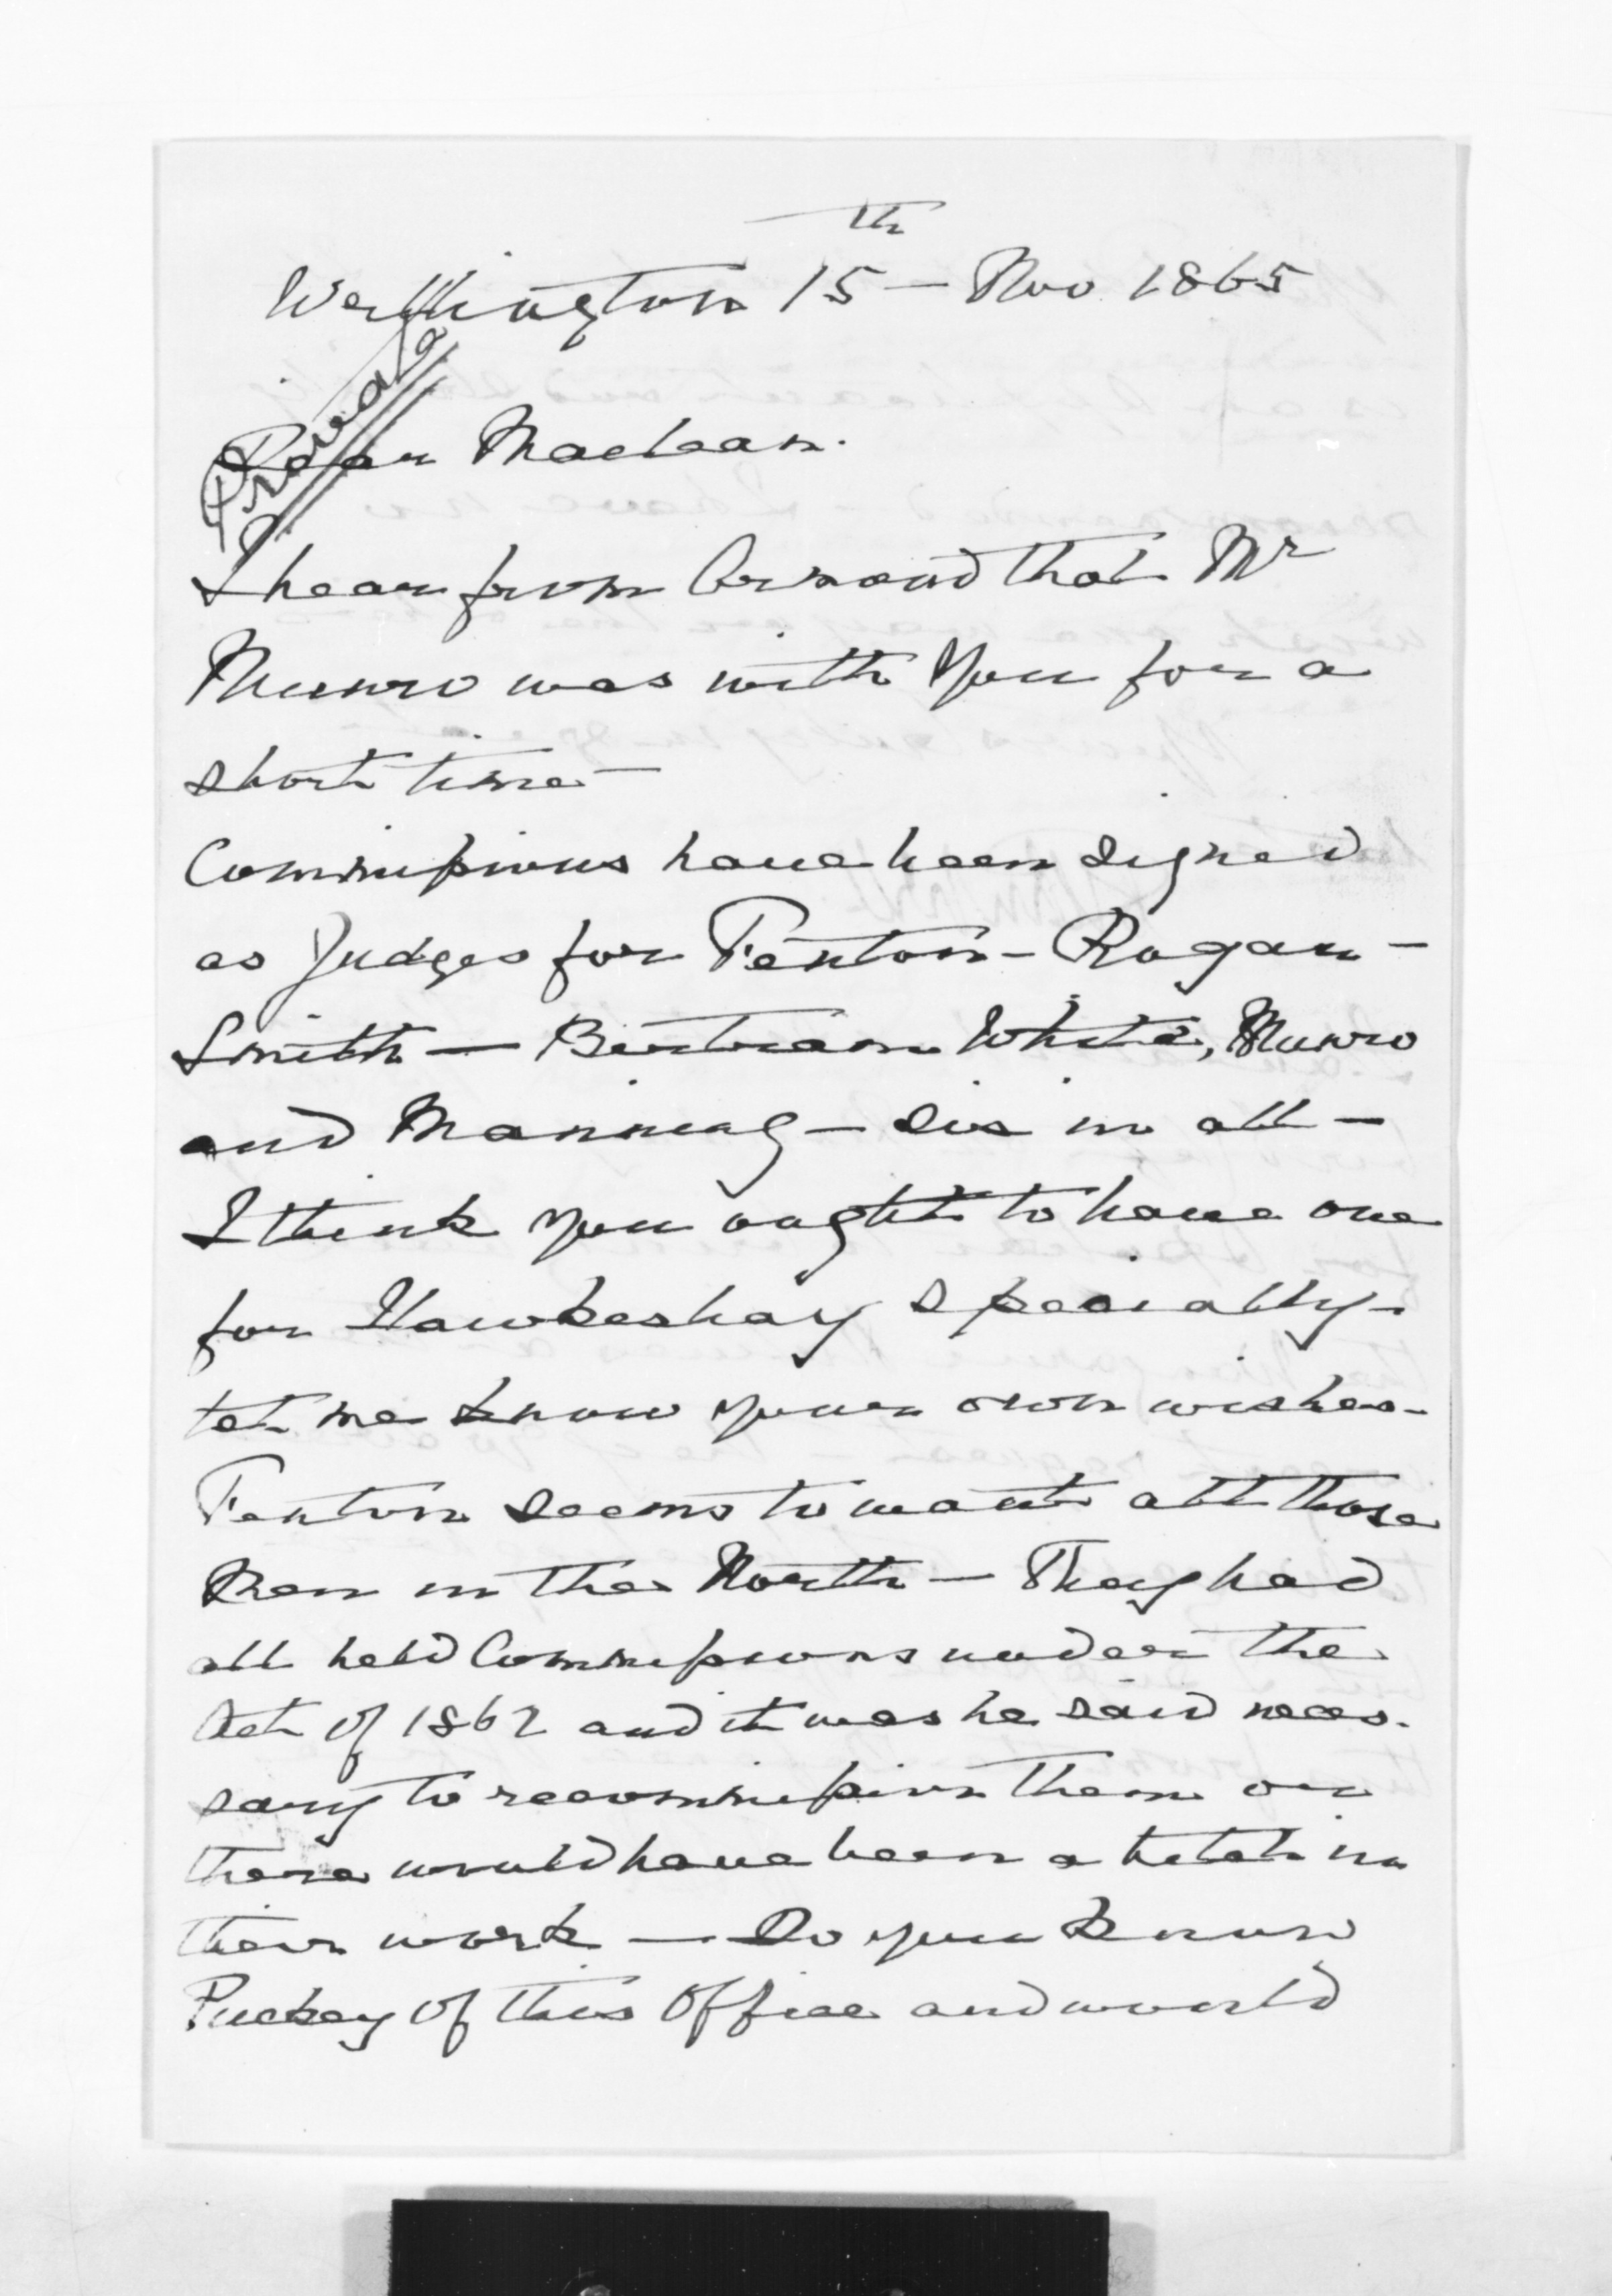 Wellington 15th Nov 1865
Private
Dear Maclean.
I hear from Ormond that Mr
Munro was with you for a
short time —
Commissions have been signed
as Judges for Fenton - Rogan -
Smith — Bertram White, Munro
and Manning — six in all —
I think you ought to have one
for Hawkesbay specially -
let me know your own wishes -
Fenton seems to want all those
Men in the North — They had
all held Commissions under the
Act of 1862 and it was he said neces-
sary to recommission them or
there would have been a hitch in
their work — Do you know
Puckey of this Office and would